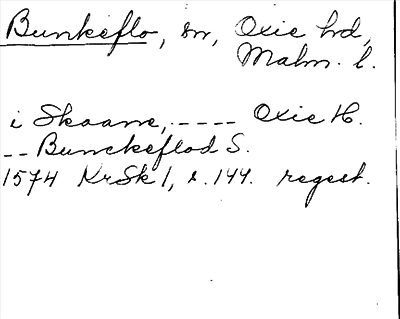 Bunkeflo, sn, Oxie hd,
Malm. l.
i Skaane, ---- Oxie H.
-- Bunckeflod S.
1574 KrSk 1, s. 144. regest.